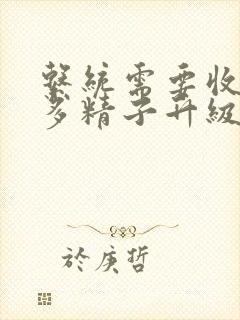 繫統需要收
多精子升級
於庚哲